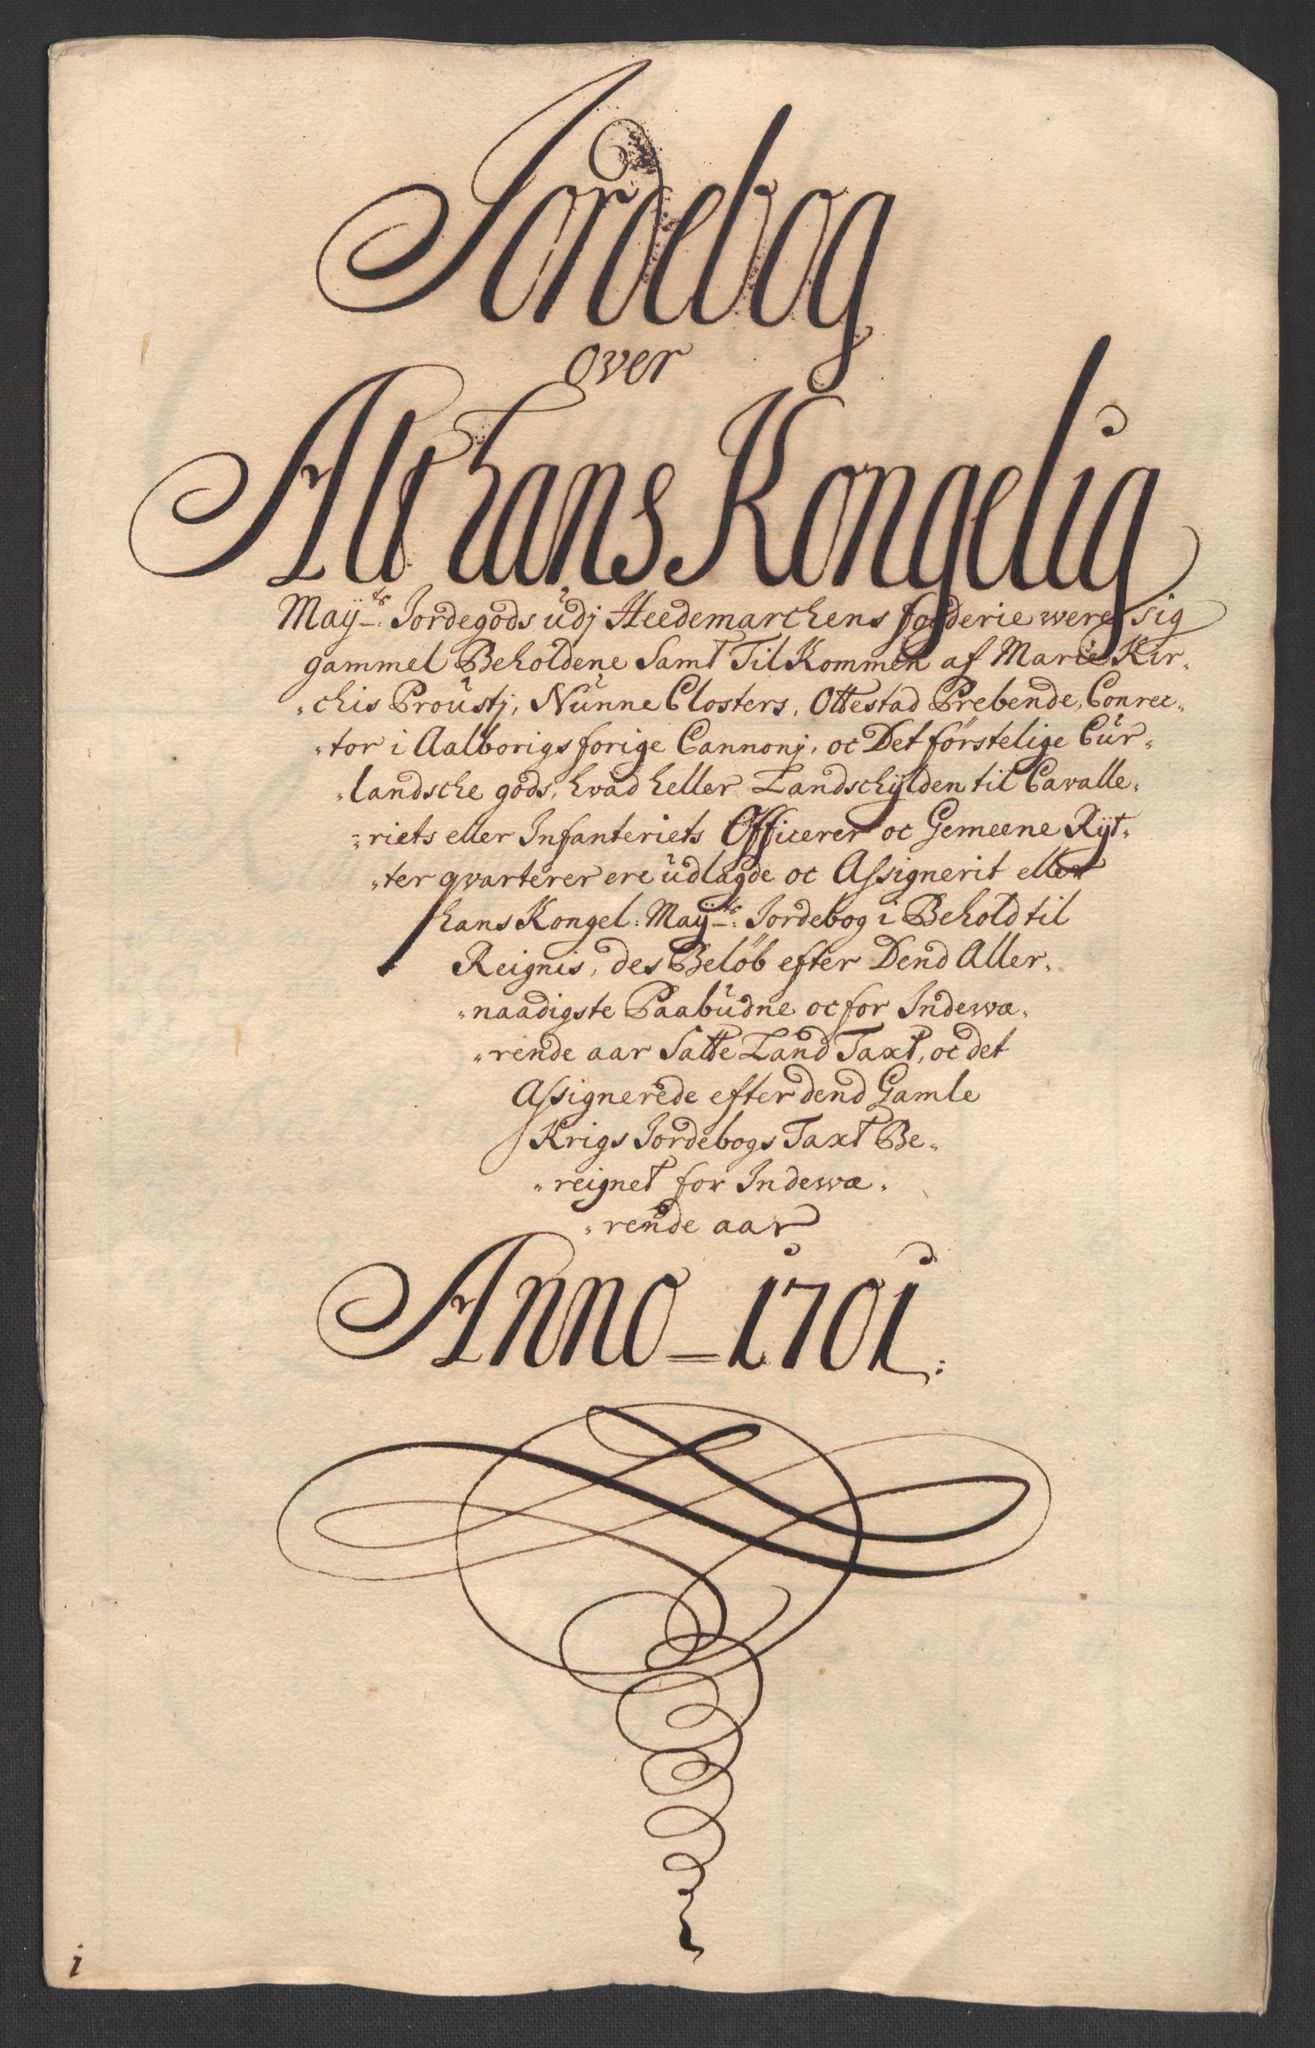 Jordebog
over
Alt hans Kongelig
Maÿ.ts Jordegods udj Heedemarchens fogderie were sig
gammel Beholdene Samt Til Kommen af Marie Kir-
-chis Proustj, Nunne Closters, Ottestad Prebende, Conrec-
-tor i Aalborigs forige Cannonj, oc Det förstelige Cur-
-landsche gods, hvad heller Landschÿlden til Cavalle-
-riets eller Infanteriets Officerer oc Gemeene Rÿt-
-ter qvarterer ere udlagde oc Assignerit eller
hans Kongel: Maÿ.ts: Jordebog i Behold til
Reignis, des Belöb efter Dend Aller-
-naadigste Paabudne oc for Indewæ-
-rende aar Satte Land Taxt, oc det
Assignerede efter dend Gamle
Krigs Jordebogs Taxt Be-
-reignet for Indewæ-
-rende aar
Anno = 1701.
1